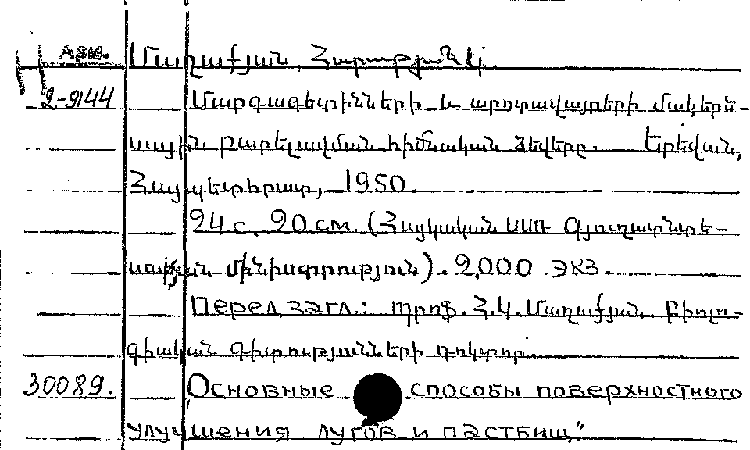 Арм. Մաղաքյան, Հարություն Կ.
2-9144 Մարգագետինների և արոտավայրերի մակերե-
սային բարելավման հիմնական ձևերը. Երևան,
Հայպետհրատ, 1950.
24 с. 20 см. (Հայկական ՍՍՌ Գյուղատնտե-
սության մինիստրություն). 2,000 экз.
Перед загл.: Պրոֆ. Հ. Կ. Մաղաքյան, Բիոլո-
գիական գիտությունների դոկտոր.
30089. „Основные способы поверхностного
улучшения лугов и пастбищ"